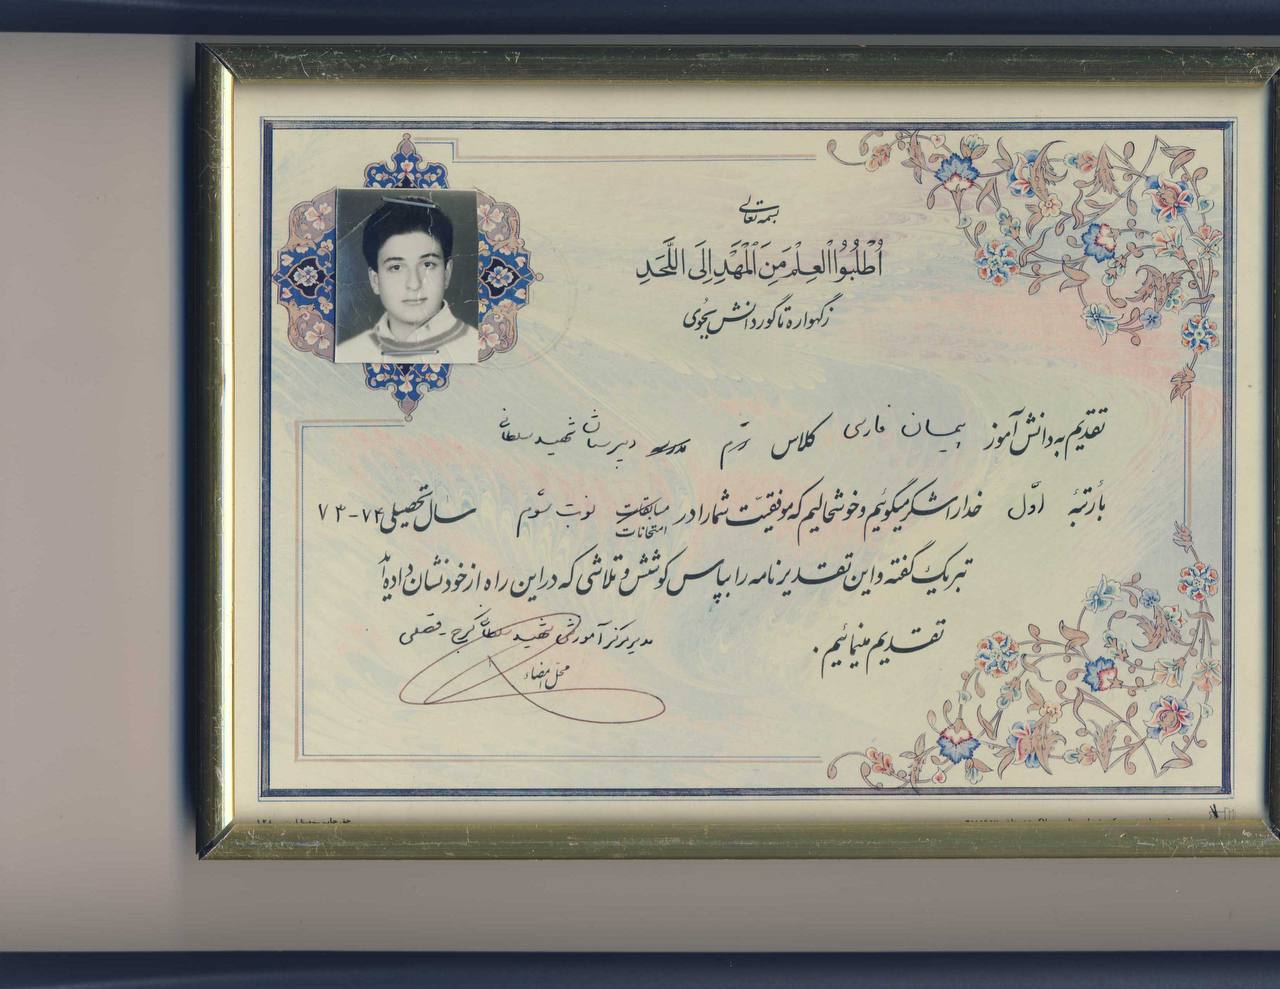 بسمه تعالی
اُطْلُبُواالْعِلْمَ مِنَ الْمَهْدِ اِلَی اللَّحَدِ
زگهواره تا گور دانش بجوی
تقدیم به دانش آموز پیمان فارسی کلاس دوم مدرسه دبیرستان شهید سلطانی
با رتبهٔ اوّل خدا را شکر میگوئیم و خوشحالیم که موفقیت شما را در مسابقات امتحانات نوبت سوّم سال تحصیلی ۷۴-۷۳
تبریک گفته و این تقدیرنامه را بپاس کوشش و تلاشی که در این راه از خود نشان داده اید
تقدیم مینمائیم.
مدیر مرکز آموزشی شهید سلطانی کرج -
محل امضاء